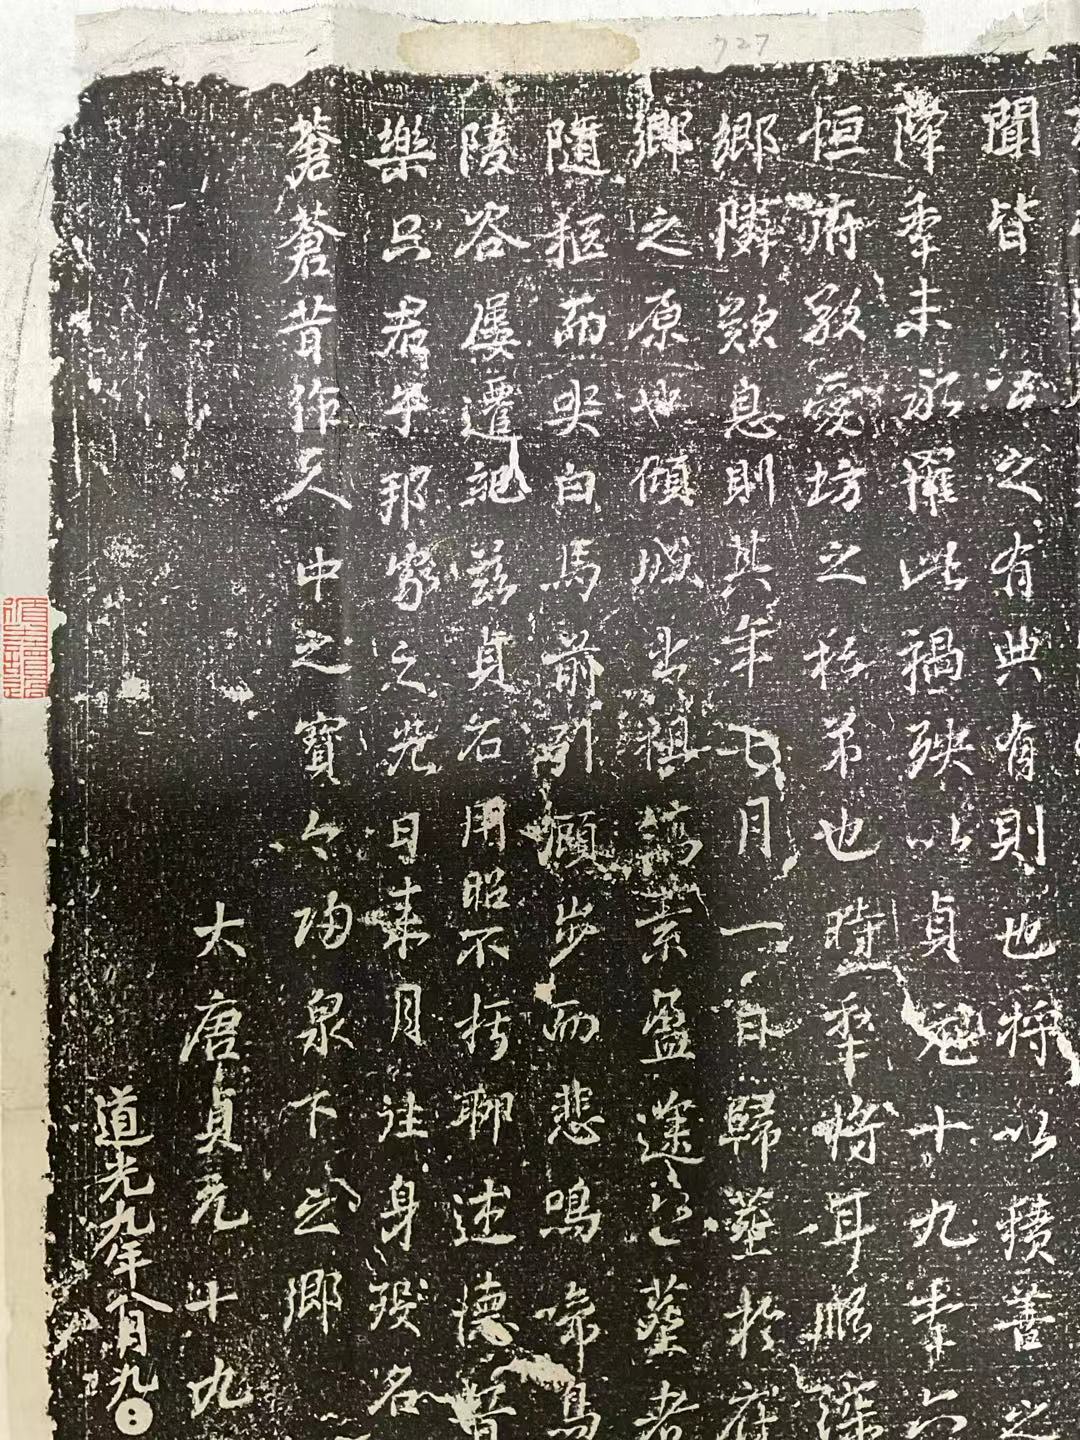 聞皆法之有典有則也將以積善之
降年未永罹此禍殃以貞元十九年六
恒府敦愛坊之私弟也時年將耳順深
鄉隣歎息則其年七月一日歸葬於府
鄉之原也傾城出祖縞素盈途之葬者
隨柩而哭白馬前引顧步而悲鳴啼鳥
陵谷屢遷記茲貞石用昭不朽聊述德音
樂只君子邦家之光日來月往身歿名
蒼蒼昔作天中之寶今為泉下之鄉
大唐貞元十九
道光九年八月九
727